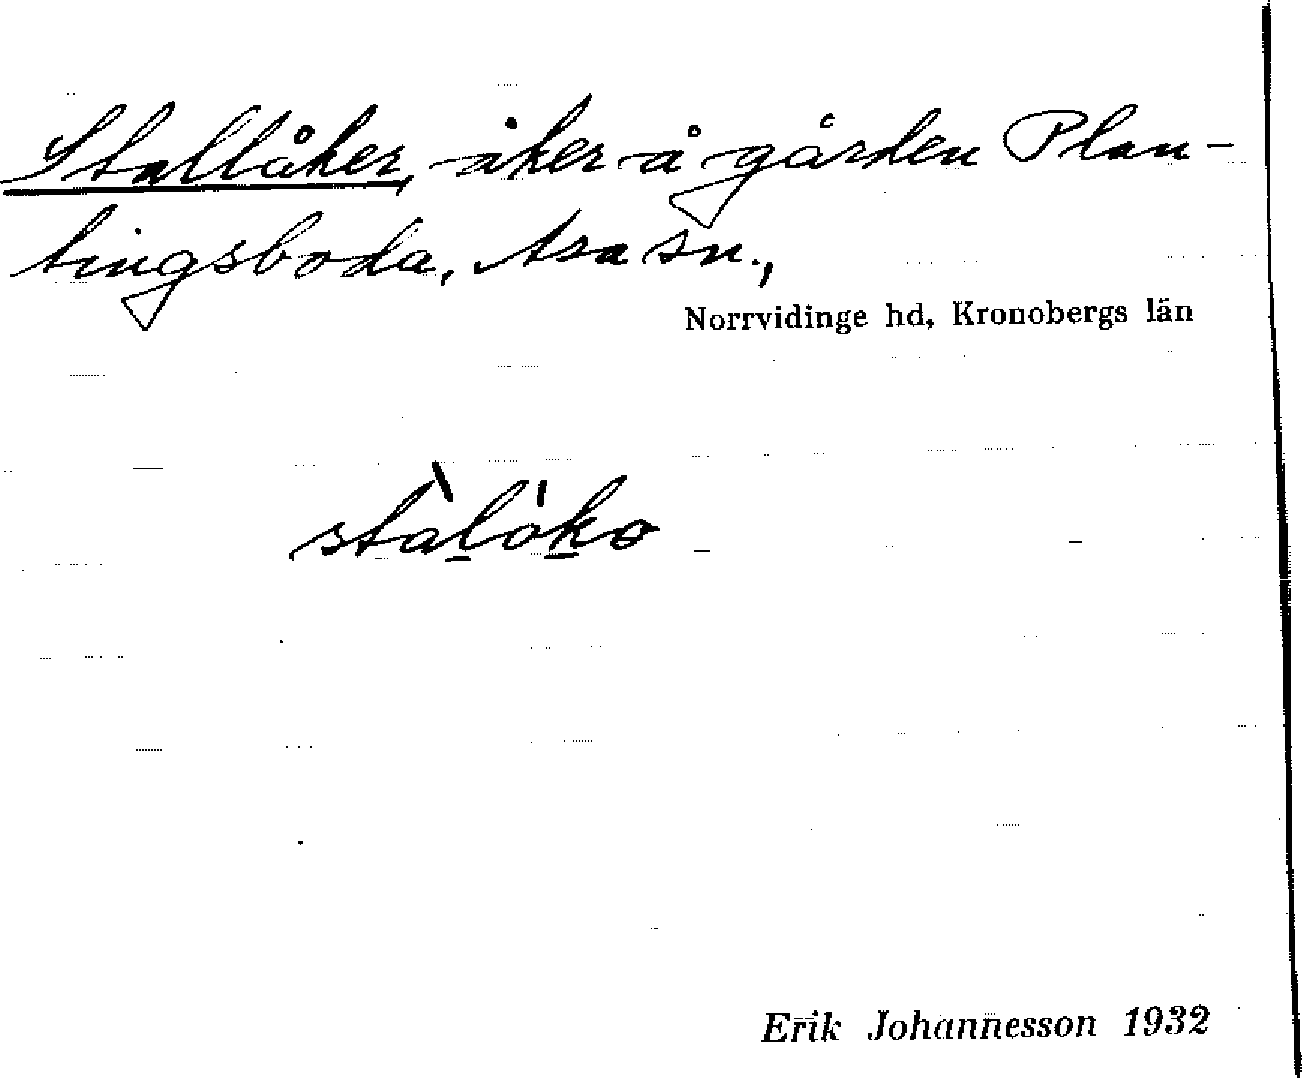 Stallåker, åker å gården Plan-
tingsboda, Asa sn.,
Norrvidinge hd, Kronobergs län
stàlóko
Erik Johannesson 1932